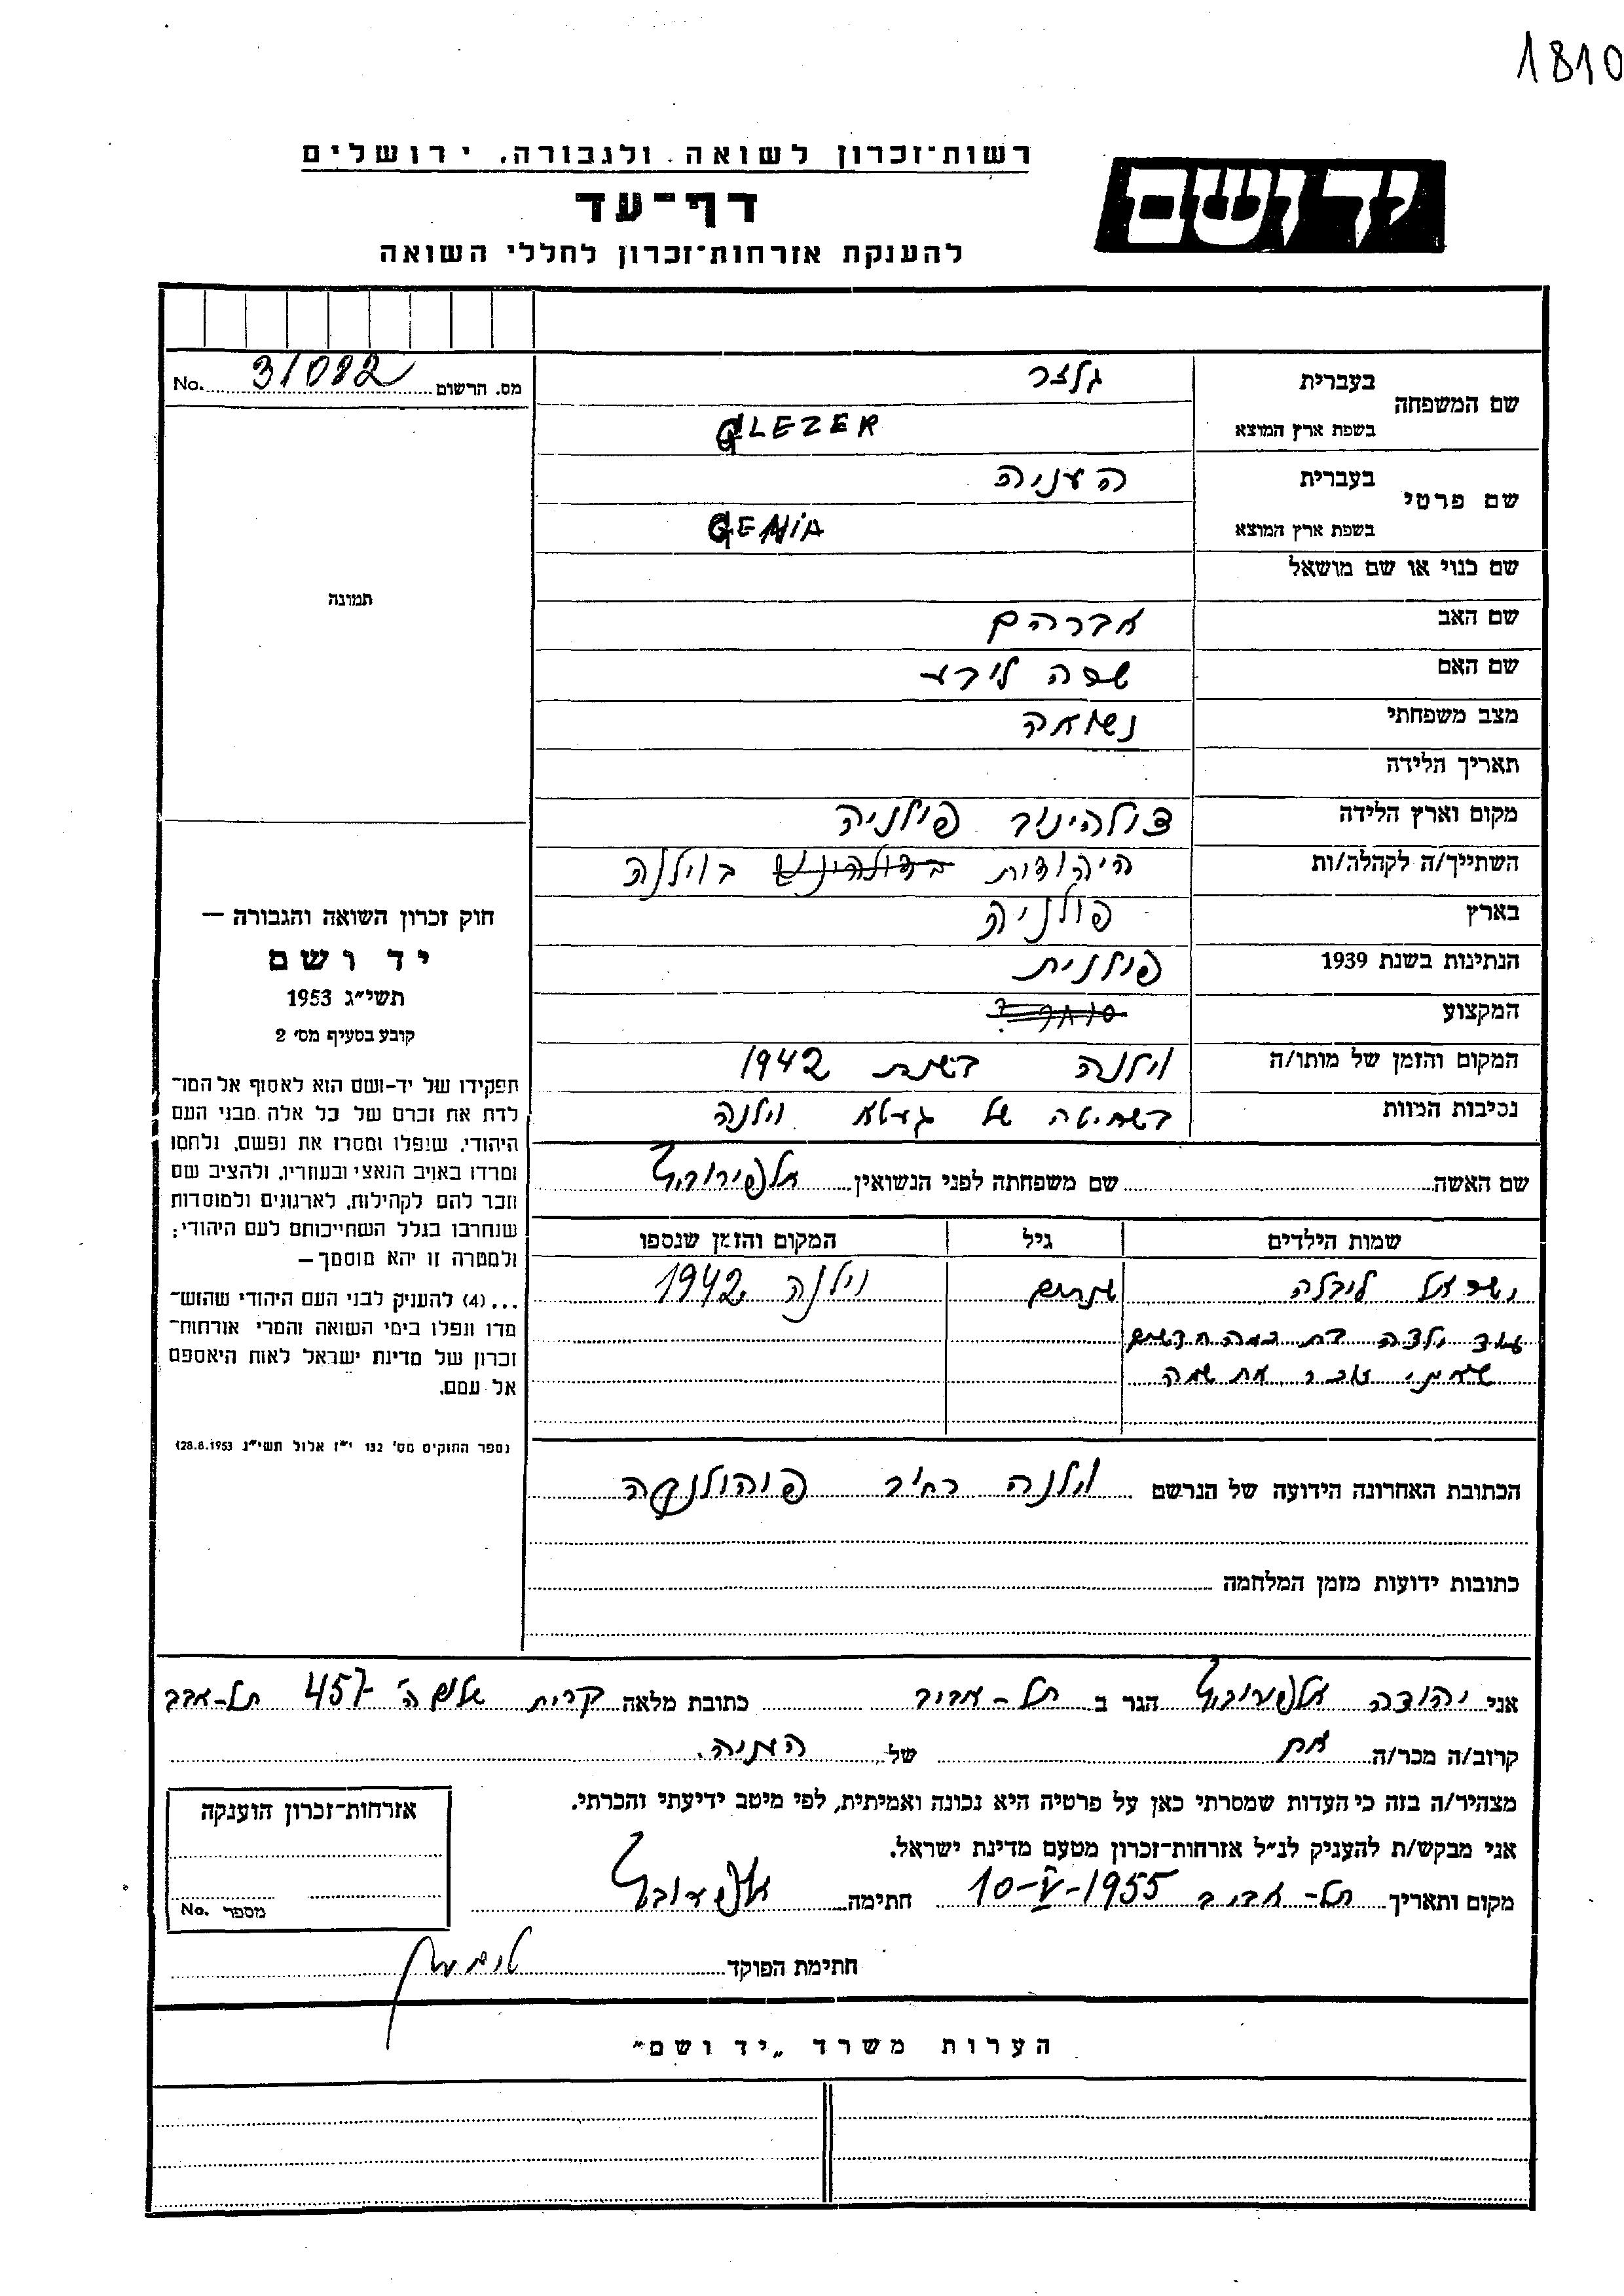 1810
רשות־זכרון לשואה ולגבורה, ירושלים
יד ושם
דף־עד
להענקת אזרחות־זכרון לחללי השואה
מס. הרשום 31082 No.
שם המשפחה
בעברית גלזר
בשפת ארץ המוצא GLEZER
שם פרטי
בעברית העניה
בשפת ארץ המוצא GENIA
שם כנוי או שם מושאל
שם האב אברהם
שם האם שרה ליבע
מצב משפחתי נשואה
תאריך הלידה
מקום וארץ הלידה דולהינוב פולניה
השתייך/ה לקהלה/ות היהודות בוילנה
בארץ פולניה
הנתינות בשנת 1939 פולנית
המקצוע
המקום והזמן של מותו/ה וילנה בשנת 1942
נסיבות המוות בשחיטה של געטא וילנה
שם האשה שם משפחתה לפני הנשואין אלפרוביץ
שמות הילדים גיל המקום והזמן שנספו
ישראל לייבלה שנתים וילנה 1942
עוד ילדה בת כמה חדשים
שאיני זוכר את שמה
הכתובת האחרונה הידועה של הנרשם וילנה רחוב פוהולנקה
כתובות ידועות מזמן המלחמה
תמונה
חוק זכרון השואה והגבורה —
יד ושם
תשי״ג 1953
קובע בסעיף מס׳ 2
תפקידו של יד-ושם הוא לאסוף אל המו־
לדת את זכרם של כל אלה מבני העם
היהודי, שנפלו ומסרו את נפשם, נלחמו
ומרדו באויב הנאצי ובעוזריו, ולהציב שם
וזכר להם לקהילות, לארגונים ולמוסדות
שנחרבו בגלל השתייכותם לעם היהודי;
ולמטרה זו יהא מוסמך—
...(4) להעניק לבני העם היהודי שהוש־
מדו ונפלו בימי השואה והמרי אזרחות־
זכרון של מדינת ישראל לאות היאספם
אל עמם.
(ספר החוקים מס׳ 132 י״ז אלול תשי״ג 28.8.1953)
אני יהודה אלפרוביץ הגר ב תל-אביב כתובת מלאה קרית שלום ה׳ 457 תל-אביב
קרוב/ה מכר/ה אח של העניה.
מצהיר/ה בזה כי העדות שמסרתי כאן על פרטיה היא נכונה ואמיתית, לפי מיטב ידיעתי והכרתי.
אני מבקש/ת להעניק לנ״ל אזרחות־זכרון מטעם מדינת ישראל.
מקום ותאריך תל-אביב 10-V-1955 חתימה אלפרוביץ
חתימת הפוקד
אזרחות־זכרון הוענקה
מספר No.
הערות משרד „יד ושם״